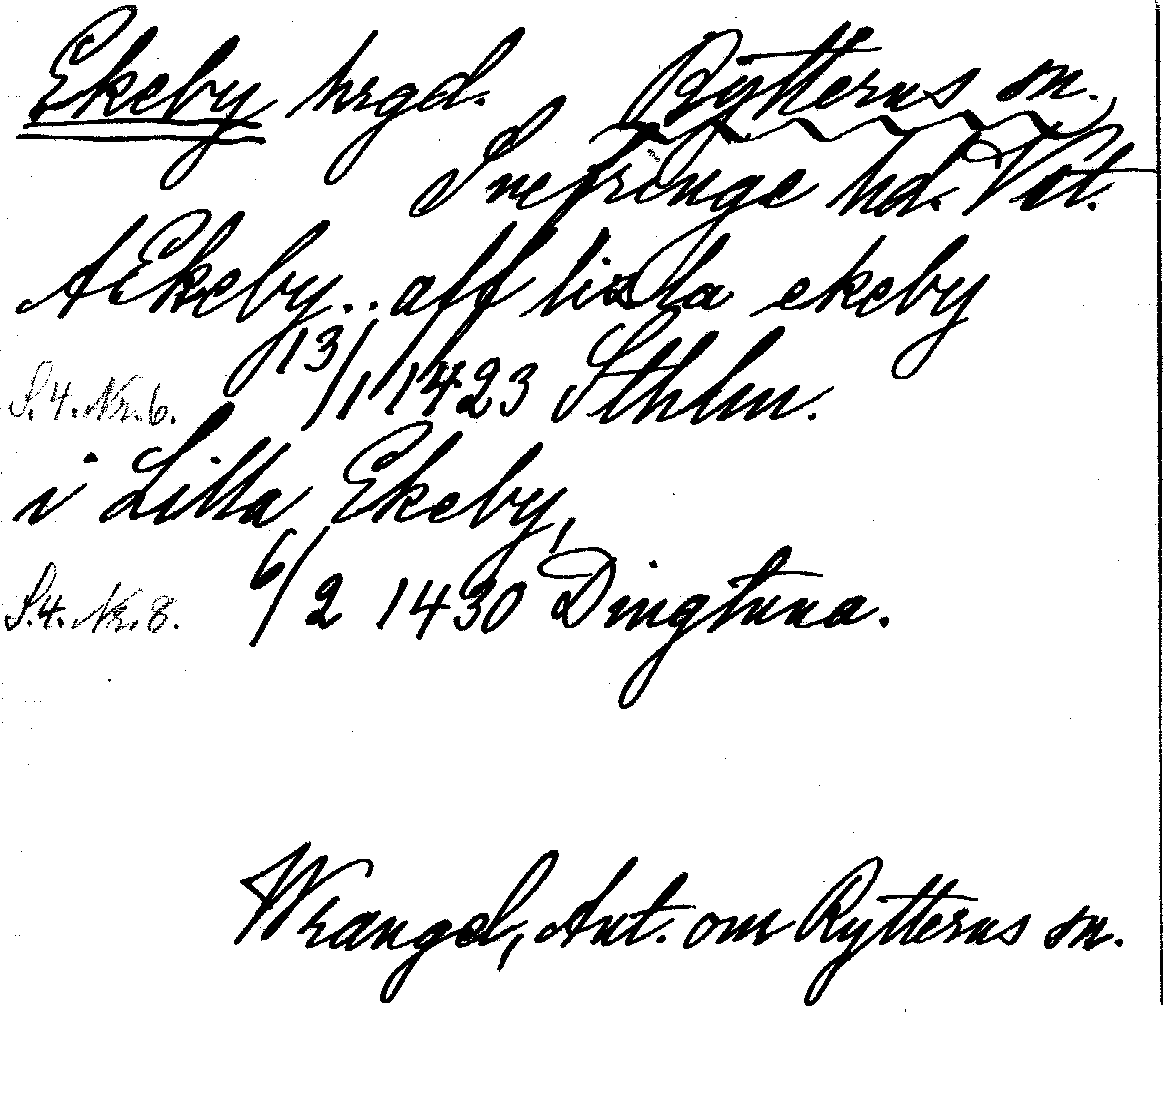 Ekeby hrgd. Rytterns sn.,
Snefringe hd. Vst.
A Ekeby.. aff litzla ekeby
S.4. Nr. 6. 13/1 1423 Sthlm.
i Litla Ekeby,
S.4. Nr. 8. 6/2 1430 Dingtuna.
Wrangel, Ant. om Rytterns sn.